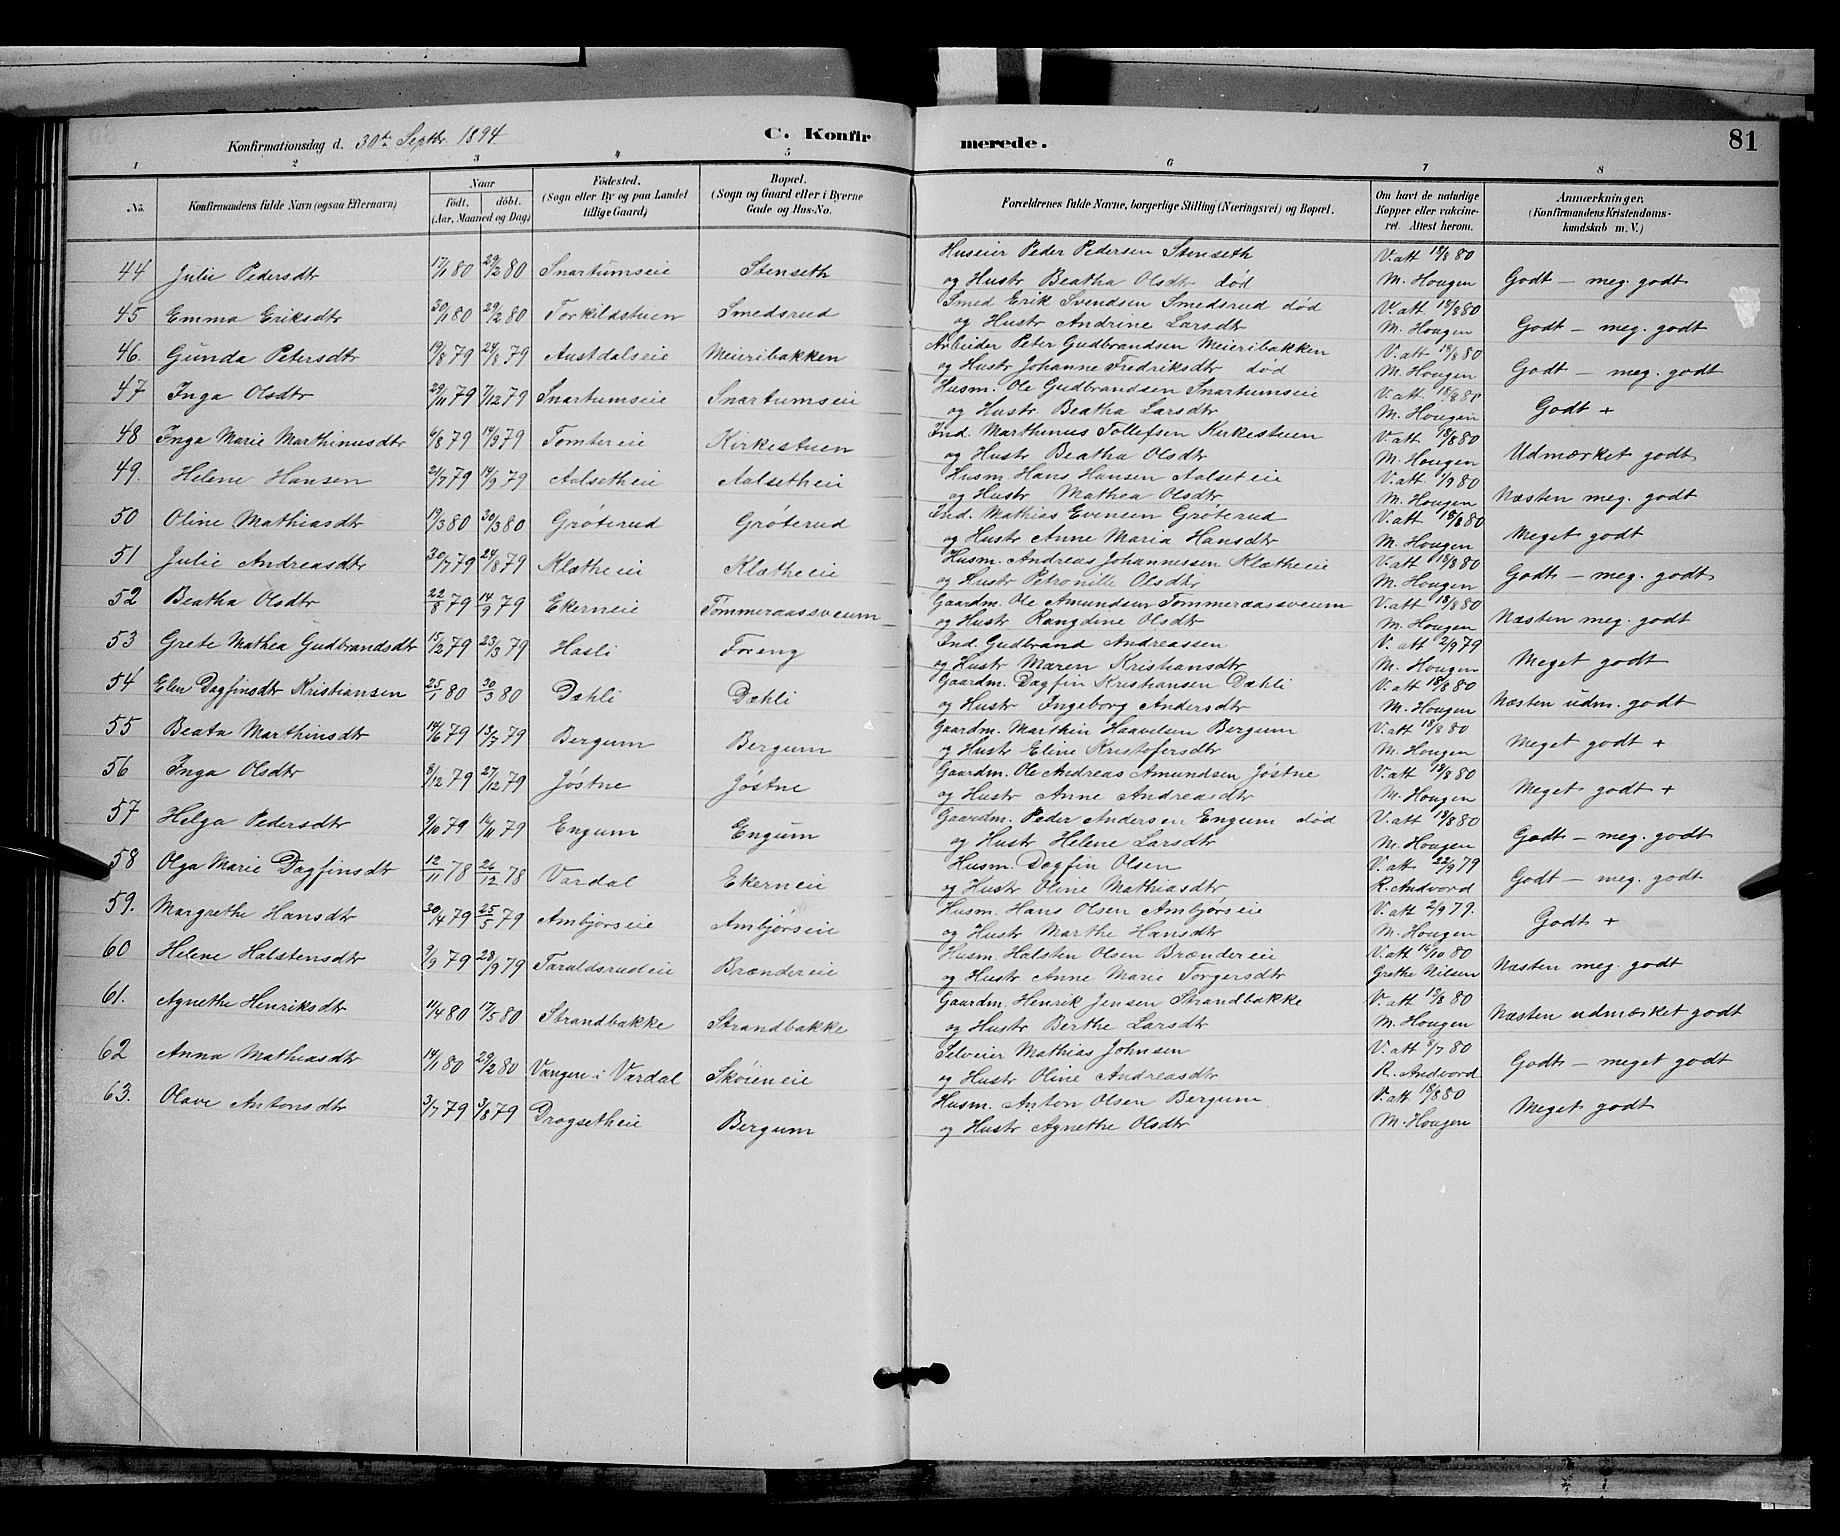 Konfirmationsdag d. 30te Septbr. 1894. C. Konfirmerede. 81
1 2 3 4 5 6 7 8
No. Konfirmandens fulde Navn (ogsaa Efternavn) Naar födt. döbt. (Aar, Maaned og Dag) Födested. (Sogn eller By og paa Landet tillige Gaard) Bopæl. (Sogn og Gaard eller i Byerne Gade og Hus-No. Forældrenes fulde Navne, borgerlige Stilling (Næringsvei) og Bopæl. Om havt de naturlige Kopper eller vakcineret. Attest herom. Anmærkninger. (Konfirmandens Kristendomskundskab m. V.)
44 Julie Pedersdtr 17/1 80 29/2 80 Snartumseie Stenseth Huseier Peder Pedersen Stenseth V. att 18/8 80
og Hustr Beatha Olsdtr død M. Hougen Godt – meg. godt
45 Emma Eriksdtr 30/1 80 29/2 80 Torkildstuen Smedsrud Smed Erik Svendsen Smedsrud død V. att 18/8 80
og Hustr Andrine Larsdtr M. Hougen Godt – meg. godt
46. Gunda Petersdtr 19/8 79 24/8 79 Austdalseie Meieribakken Arbeider Peter Gudbrandsen Meieribakken V. att 18/8 80
og Hustr Johanne Fredriksdtr død M. Hougen Godt – meg. godt
47 Inga Olsdtr 29/11 79 7/12 79 Snartumseie Snartumseie Husm. Ole Gudbrandsen Snartumseie V. att 18/8 80
og Hustr. Beatha Larsdtr M. Hougen Godt +
48 Inga Marie Marthinusdtr 6/8 79 14/9 79 Tomtereie Kirkestuen Ind. Marthinus Tollefsen Kirkestuen V. att 18/8 80
og Hustr Beatha Olsdtr M. Hougen Udmærket godt
49. Helene Hansen 21/7 79 14/9 79 Aalsetheie Aalsetheie Husm. Hans Hansen Aalseteie V. att 80
og Hustr Mathea Olsdtr M. Hougen Næsten meg. godt
50 Oline Mathiasdtr 19/3 80 30/3 80 Gröterud Gröterud Ind. Mathias Evensen Gröterud V. att 18/8 80
og Hustr Anne Maria Hansdtr M. Hougen Meget godt
51 Julie Andreasdtr 30/7 79 24/8 79 Klætheie Klætheie Husm. Andreas Johannessen Klætheie V. att 18/8 80
og Hustr Petronille Olsdtr M. Hougen Godt – meg. godt
52 Beatha Olsdtr 22/8 79 14/9 79 Ekerneie Tommeraassveum Gaardm. Ole Amundsen Tommeraassveum V. att 18/8 80
og Hustr Rangdine Olsdtr M. Hougen Næsten meg. godt
53 Grete Mathea Gudbrandsdtr 15/2 79 23/3 79 Hasli Foreng Ind. Gudbrand Andreassen V. att 2/9 79
og Hustr Maren Kristiansdtr M. Hougen Meget godt
54 Elen Dagfinsdtr Kristiansen 25/1 80 30/3 80 Dæhli Dæhli Gaardm. Dagfin Kristiansen Dæhli V. att 18/8 80
og Hustr Ingeborg Andersdtr M. Hougen Næsten udm. godt
55 Beata Marthinsdtr 14/6 79 13/7 79 Bergum Bergum Gaardm. Marthin Haavelsen Bergum V. att 18/8 80
og Hustr Eline Kristofersdtr M. Hougen Meget godt +
56 Inga Olsdtr 8/12 79 27/12 79 Jøstne Jøstne Gaardm. Ole Andreas Amundsen Jøstne V. att 18/8 80
og Hustr Anne Andreasdtr M. Hougen Meget godt +
57 Helga Pedersdtr 9/10 79 16/11 79 Engum Engum Gaardm. Peder Andersen Engum død V. att 18/8 80
og Hustr Helene Larsdtr M. Hougen Godt – meg. godt
58 Olga Marie Dagfinsdtr 12/11 78 26/12 78 Vardal Ekerneie Husm. Dagfin Olsen V. att 22/9 79
og Hustr Oline Mathiasdtr R. Andvord Godt – meg. godt
59. Margrethe Hansdtr 30/4 79 25/5 79 Ambjörseie Ambjörseie Husm. Hans Olsen Ambjörseie V. att 2/9 79.
og Hustr Marthe Hansdtr M. Hougen Godt +
60 Helene Halstensdtr 9/9 79 28/9 79 Taraldsrudeie Brændereie Husm. Halsten Olsen Brændereie V. att 14/10 80
og Hustr Anne Marie Torgersdtr Grethe Nilsen Næsten meg. godt
61. Agnethe Henriksdtr 11/4 80 17/5 80 Strandbakke Strandbakke Gaardm. Henrik Jensen Strandbakke V. att 18/8 80
og Hustr Berthe Larsdtr M. Hougen Næsten udmærket godt
62 Anna Mathiasdtr 14/1 80 29/2 80 Vangen i Vardal Skóieneie Selveier Mathias Johnsen V. att 8/7 80
og Hustr Oline Andreasdtr R. Andvord Godt – meget godt
63. Olave Antonsdtr 3/7 79 3/8 79 Drogsetheie Bergum Husm. Anton Olsen Bergum V. att 18/8 80
og Hustr Agnethe Olsdtr M. Hougen Meget godt